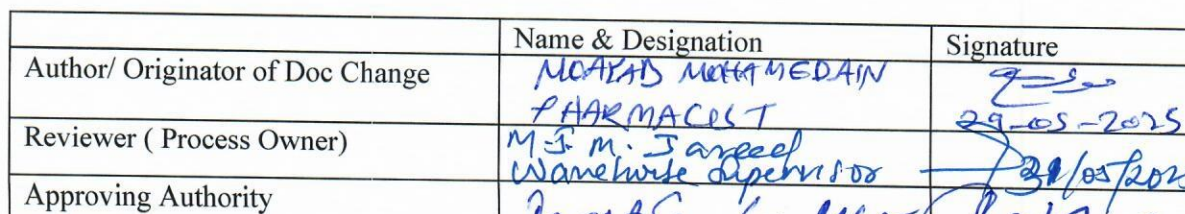 Name & Designation Signature
Author/ Originator of Doc Change MOAYAD MOHAMEDAIN
PHARMACIST 29-05-2025
Reviewer ( Process Owner) M.J.M. Jareed
Warehouse Supervisor /05/202
Approving Authority